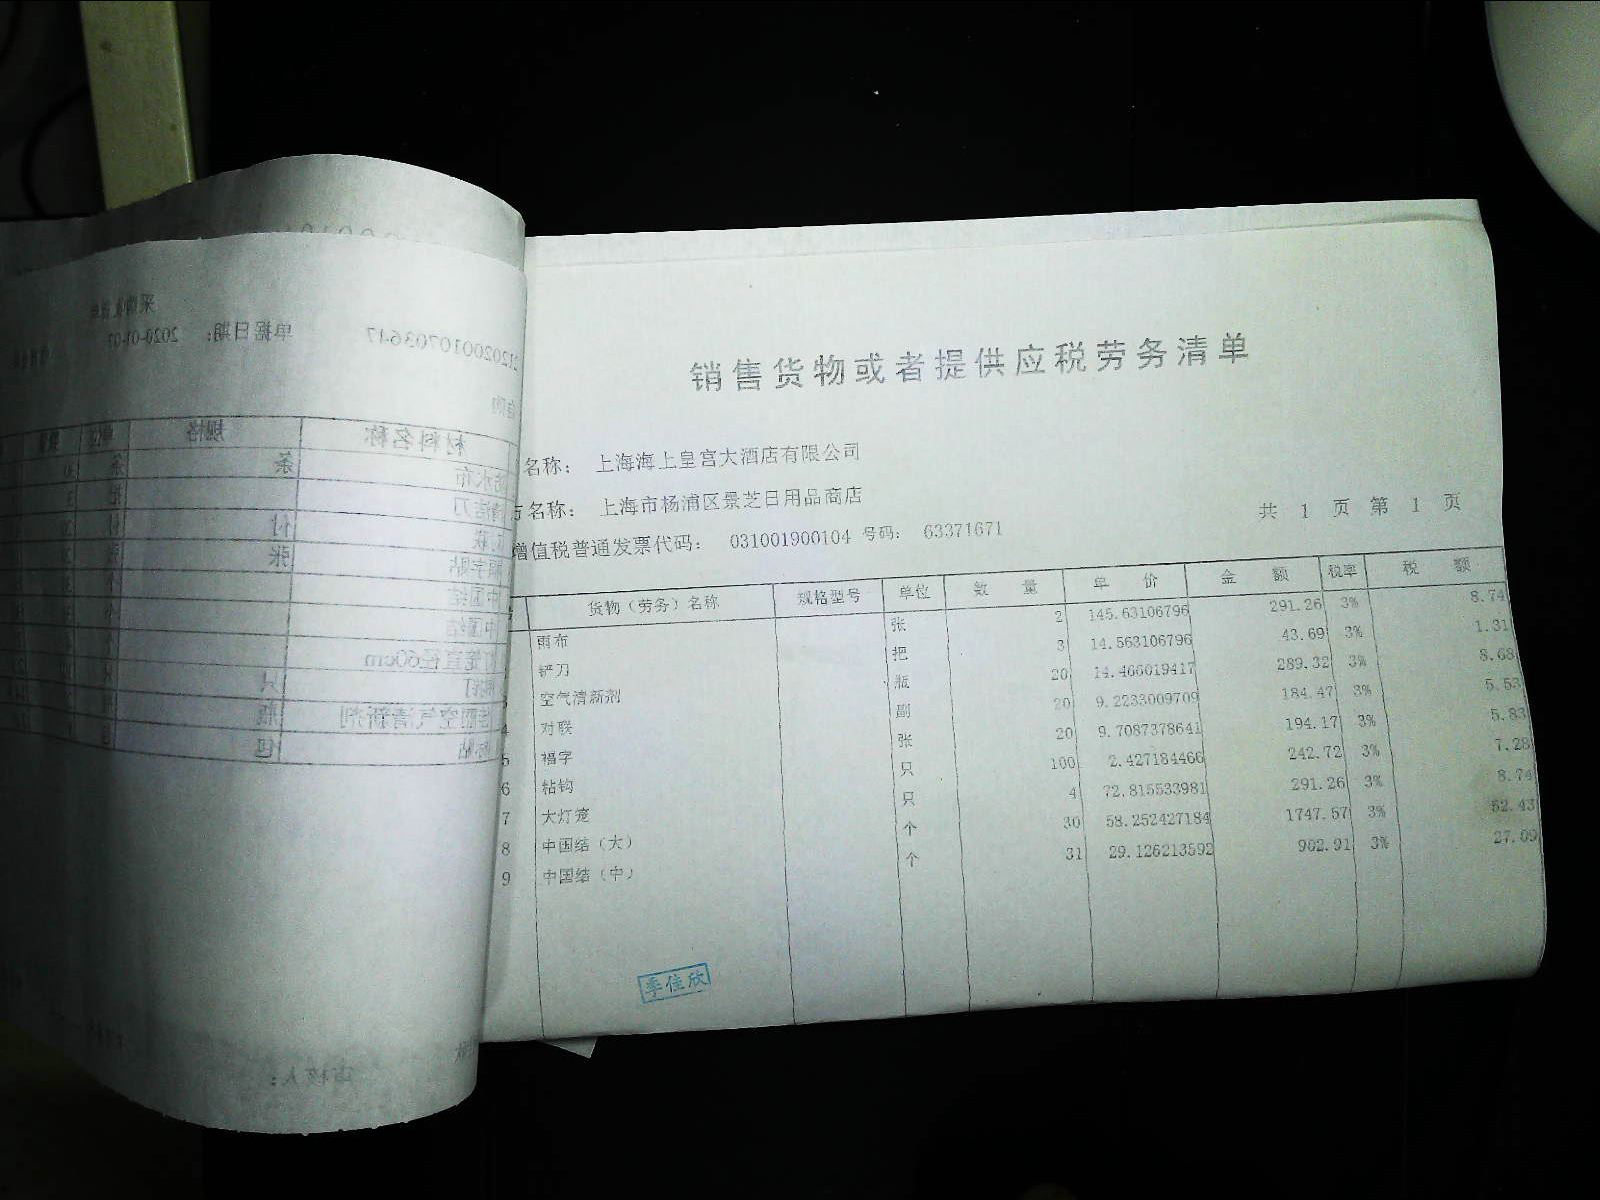 销售货物或者提供应税劳务清单
名称： 上海海上皇宫大酒店有限公司
方名称： 上海市杨浦区景芝日用品商店
增值税普通发票代码： 031001900104 号码： 63371671
共 1 页 第 1 页
货物（劳务）名称 规格型号 单位 数 量 单 价 金 额 税率 税 额
雨布 张 2 145.63106796 291.26 3% 8.74
铲刀 把 3 14.563106796 43.69 3% 1.31
空气清新剂 瓶 20 14.466019417 289.32 3% 8.68
4 对联 副 20 9.2233009709 184.47 3% 5.53
5 福字 张 20 9.7087378641 194.17 3% 5.83
6 粘钩 只 100 2.427184466 242.72 3% 7.28
7 大灯笼 只 4 72.815533981 291.26 3% 8.74
8 中国结（大） 个 30 58.252427184 1747.57 3% 52.43
9 中国结（中） 个 31 29.126213592 902.91 3% 27.09
季佳欣
单据日期： 2020-01-07
材料名称 规格
防水布 条
中国结
中国结
灯笼直径60cm
空气清新剂 瓶
审核人：